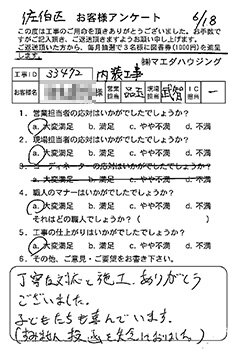 佐伯区 お客様アンケート 6/18
この度は工事のご用命を頂きありがとうございました。お手数で
すがご記入頂き、ご返送頂きますようお願い申し上げます。
ご返送頂いた方から、毎月抽選で3名様に図書券(1000円)を進呈
します。
㈱マエダハウジング
工事ID 33472 内装工事
お客様名 様 営業担当 現場担当 武智 IC担当 ー
1. 営業担当者の応対はいかがでしたでしょうか?
a. 大変満足 b. 満足 c. やや不満 d. 不満
2. 現場担当者の応対はいかがでしたでしょうか?
a. 大変満足 b. 満足 c. やや不満 d. 不満
3. コーディネーターの応対はいかがでしたでしょうか?
a. 大変満足 b. 満足 c. やや不満 d. 不満
4. 職人のマナーはいかがでしたでしょうか?
a. 大変満足 b. 満足 c. やや不満 d. 不満
それはどの職人でしょうか?( )
5. 工事の仕上がりはいかがでしたでしょうか?
a. 大変満足 b. 満足 c. やや不満 d. 不満
6. その他、ご意見・ご要望をお書き下さい。
丁寧な対応と施工、ありがとう
ございました。
子どもたちも喜んでいます。